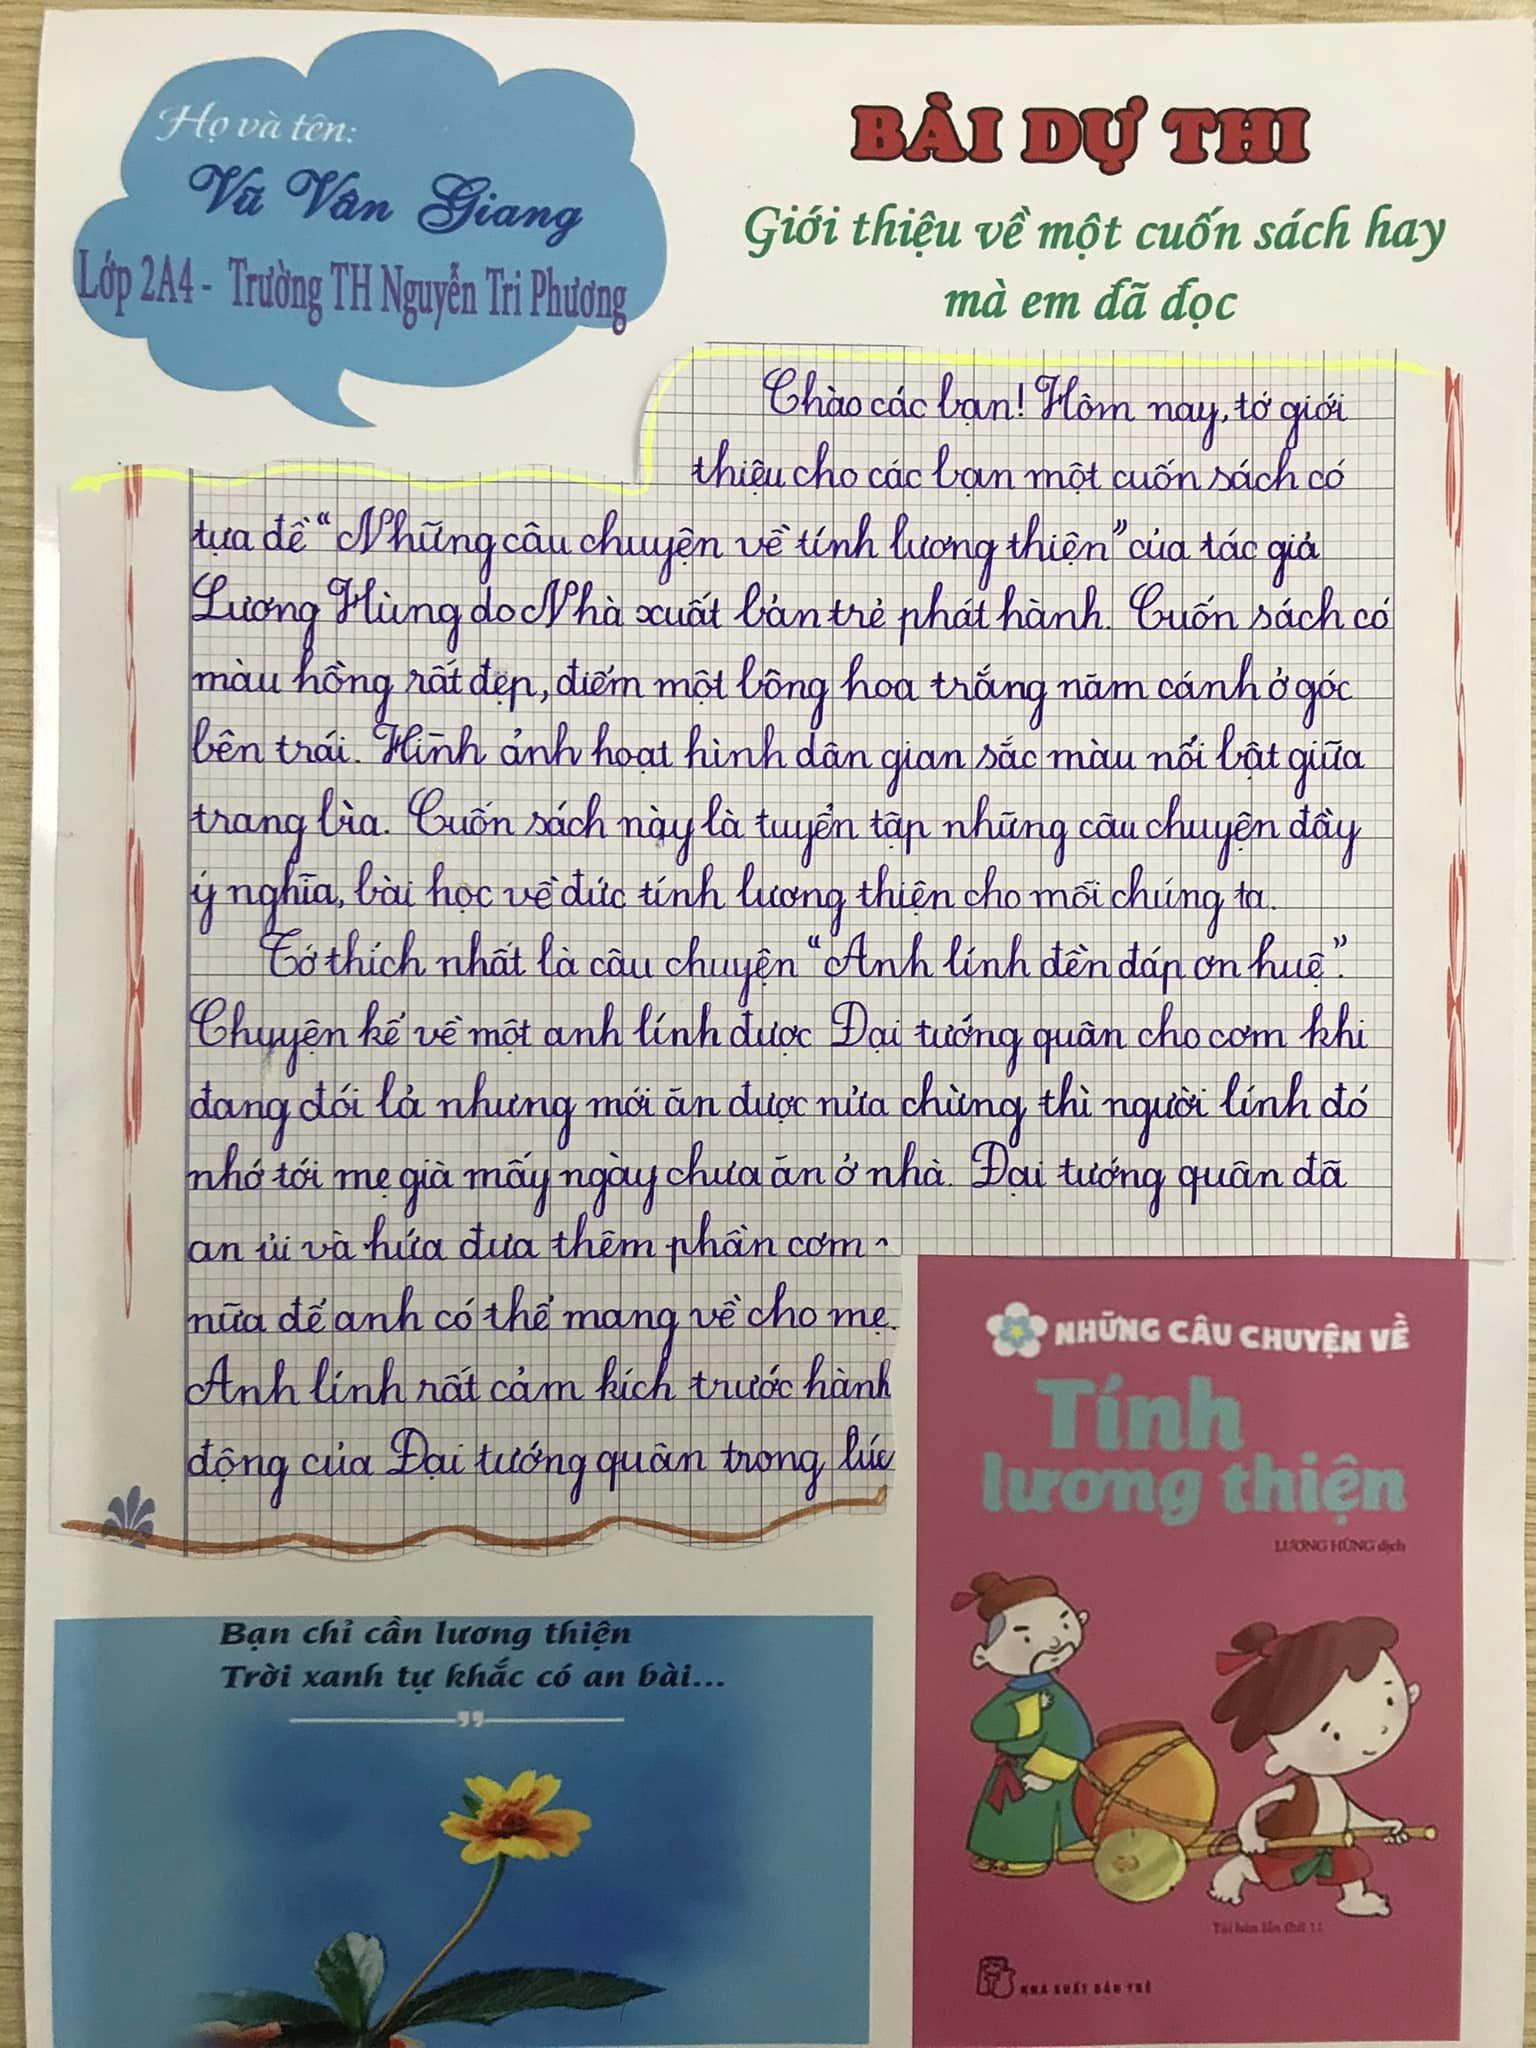 Họ và tên:
Vũ Vân Giang
Lớp 2A4 - Trường TH Nguyễn Tri Phương
BÀI DỰ THI
Giới thiệu về một cuốn sách hay
mà em đã đọc
Chào các bạn! Hôm nay, tớ giới
thiệu cho các bạn một cuốn sách có
tựa đề "Những câu chuyện về tính lương thiện" của tác giả
Lương Hùng do Nhà xuất bản trẻ phát hành. Cuốn sách có
màu hồng rất đẹp, điểm một bông hoa trắng năm cánh ở góc
bên trái. Hình ảnh hoạt hình dân gian sắc màu nổi bật giữa
trang bìa. Cuốn sách này là tuyển tập những câu chuyện đầy
ý nghĩa, bài học về đức tính lương thiện cho mỗi chúng ta.
Tớ thích nhất là câu chuyện "Anh lính đền đáp ơn huệ".
Chuyện kể về một anh lính được Đại tướng quân cho cơm khi
đang đói lả nhưng mới ăn được nửa chừng thì người lính đó
nhớ tới mẹ già mấy ngày chưa ăn ở nhà. Đại tướng quân đã
an ủi và hứa đưa thêm phần cơm
nữa để anh có thể mang về cho mẹ.
Anh lính rất cảm kích trước hành
động của Đại tướng quân trong lúc
NHỮNG CÂU CHUYỆN VỀ
Tính
lương thiện
LƯƠNG HÙNG dịch
Tái bản lần thứ 11
NHÀ XUẤT BẢN TRẺ
Bạn chỉ cần lương thiện
Trời xanh tự khắc có an bài...